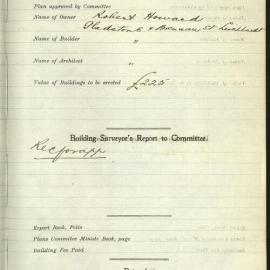 Plan approved by Committee
Name of Owner Robert Howard
Gladstone & St Leichhardt
Name of Builder "
Name of Architect "
Value of Buildings to be erected £225
Building Surveyor's Report to Committee.
Rec for app
Report Book, Folio
Plans Committee Minute Book, page
Building Fee Paid